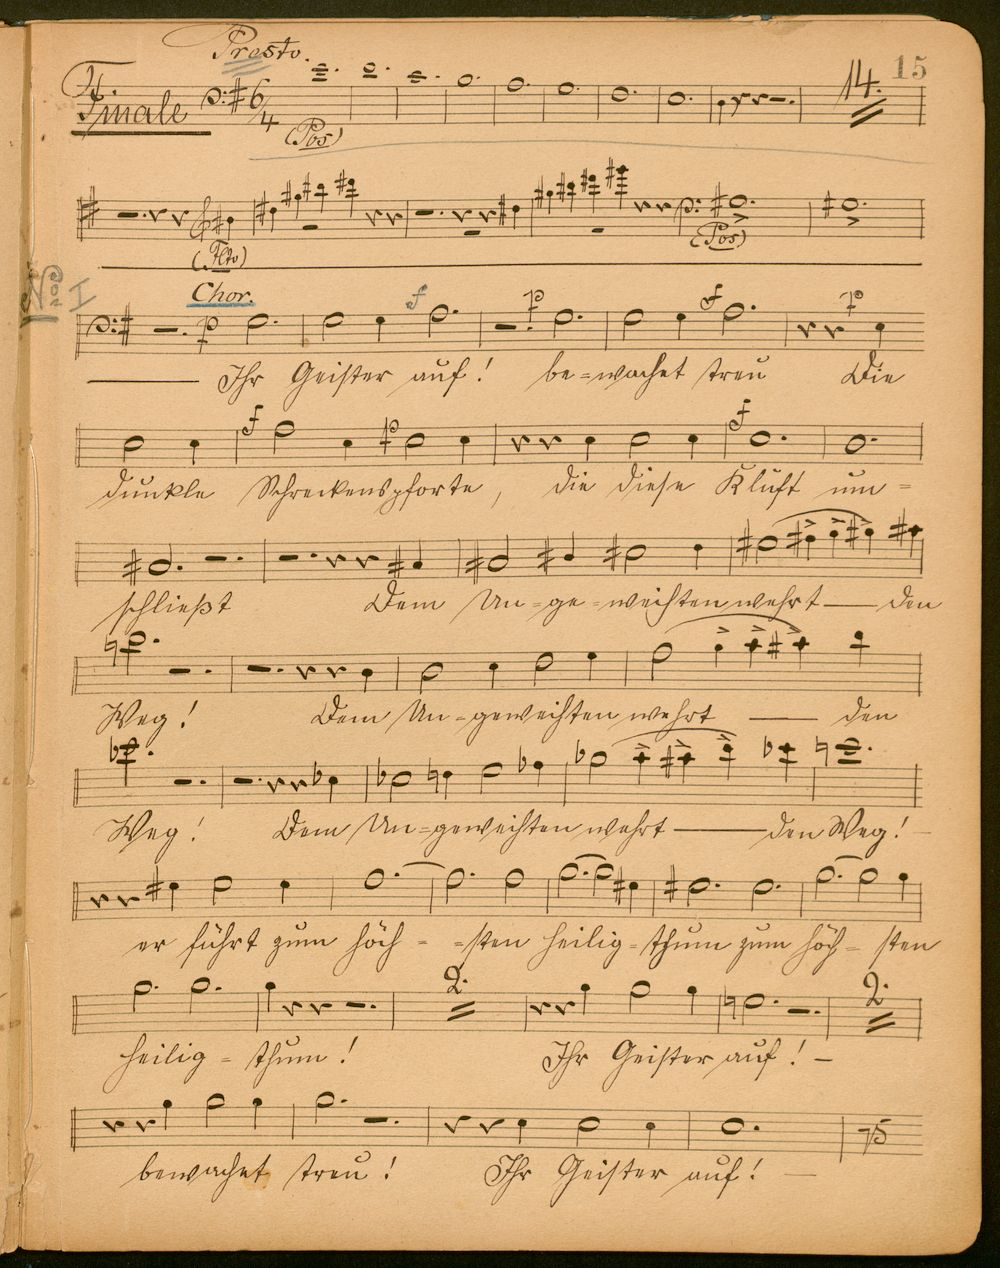 Presto.
15
Finale 6/4 14.
(Pos)
(Flto) (Pos)
I
Chor.
p f p f p
Ihr Geister auf! be=wachet treu Die
f p f
dunkle Schreckenspforte, die diese Kluft um=
schließt Dem Un=ge=weihten wehrt — den
Weg! Dem Un=geweihten wehrt — den
Weg! Dem Un=geweihten wehrt — den Weg! –
er führt zum höch= =sten heilig=thum zum höch= sten
2. 2.
heilig= thum! Ihr Geister auf! –
75
bewachet treu! Ihr Geister auf! —